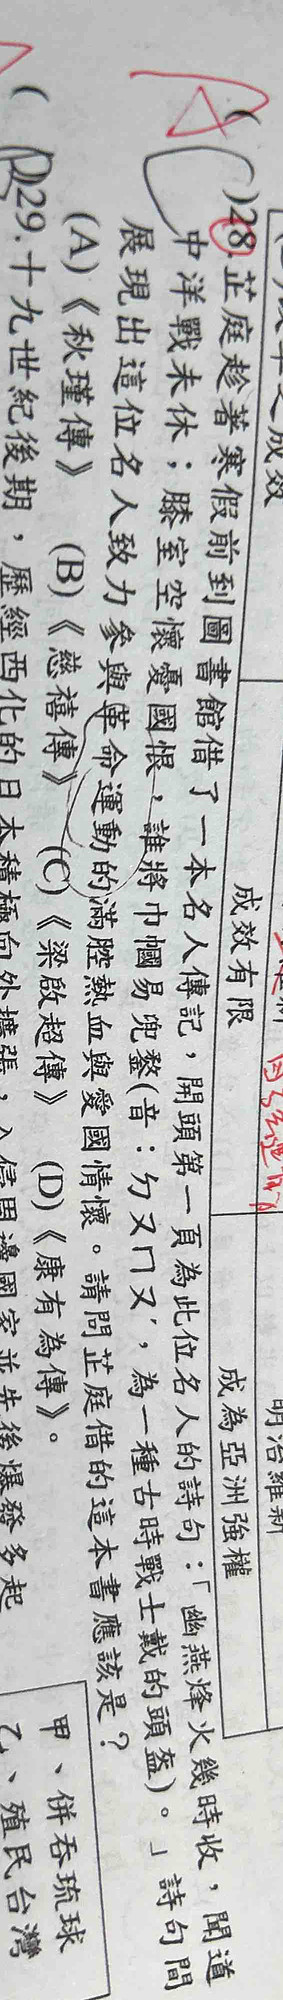 成效有限
成為亞洲強權
明治維新
A
(C)28.芷庭趁著寒假前到圖書館借了一本名人傳記，開頭第一頁為此位名人的詩句：「幽燕烽火幾時收，聞道
中洋戰未休；膝室空懷憂國恨，誰將巾幗易兜鍪(音：ㄉㄡㄇㄡˊ，為一種古時戰士戴的頭盔)。」詩句間
展現出這位名人致力參與革命運動的滿腔熱血與愛國情懷。請問芷庭借的這本書應該是？
(A)《秋瑾傳》 (B)《慈禧傳》 (C)《梁啟超傳》 (D)《康有為傳》。
(D)29.十九世紀後期，歷經西化的日本積極向外擴張，入侵周邊國家並先後爆發多起
甲、併吞琉球
乙、殖民台灣